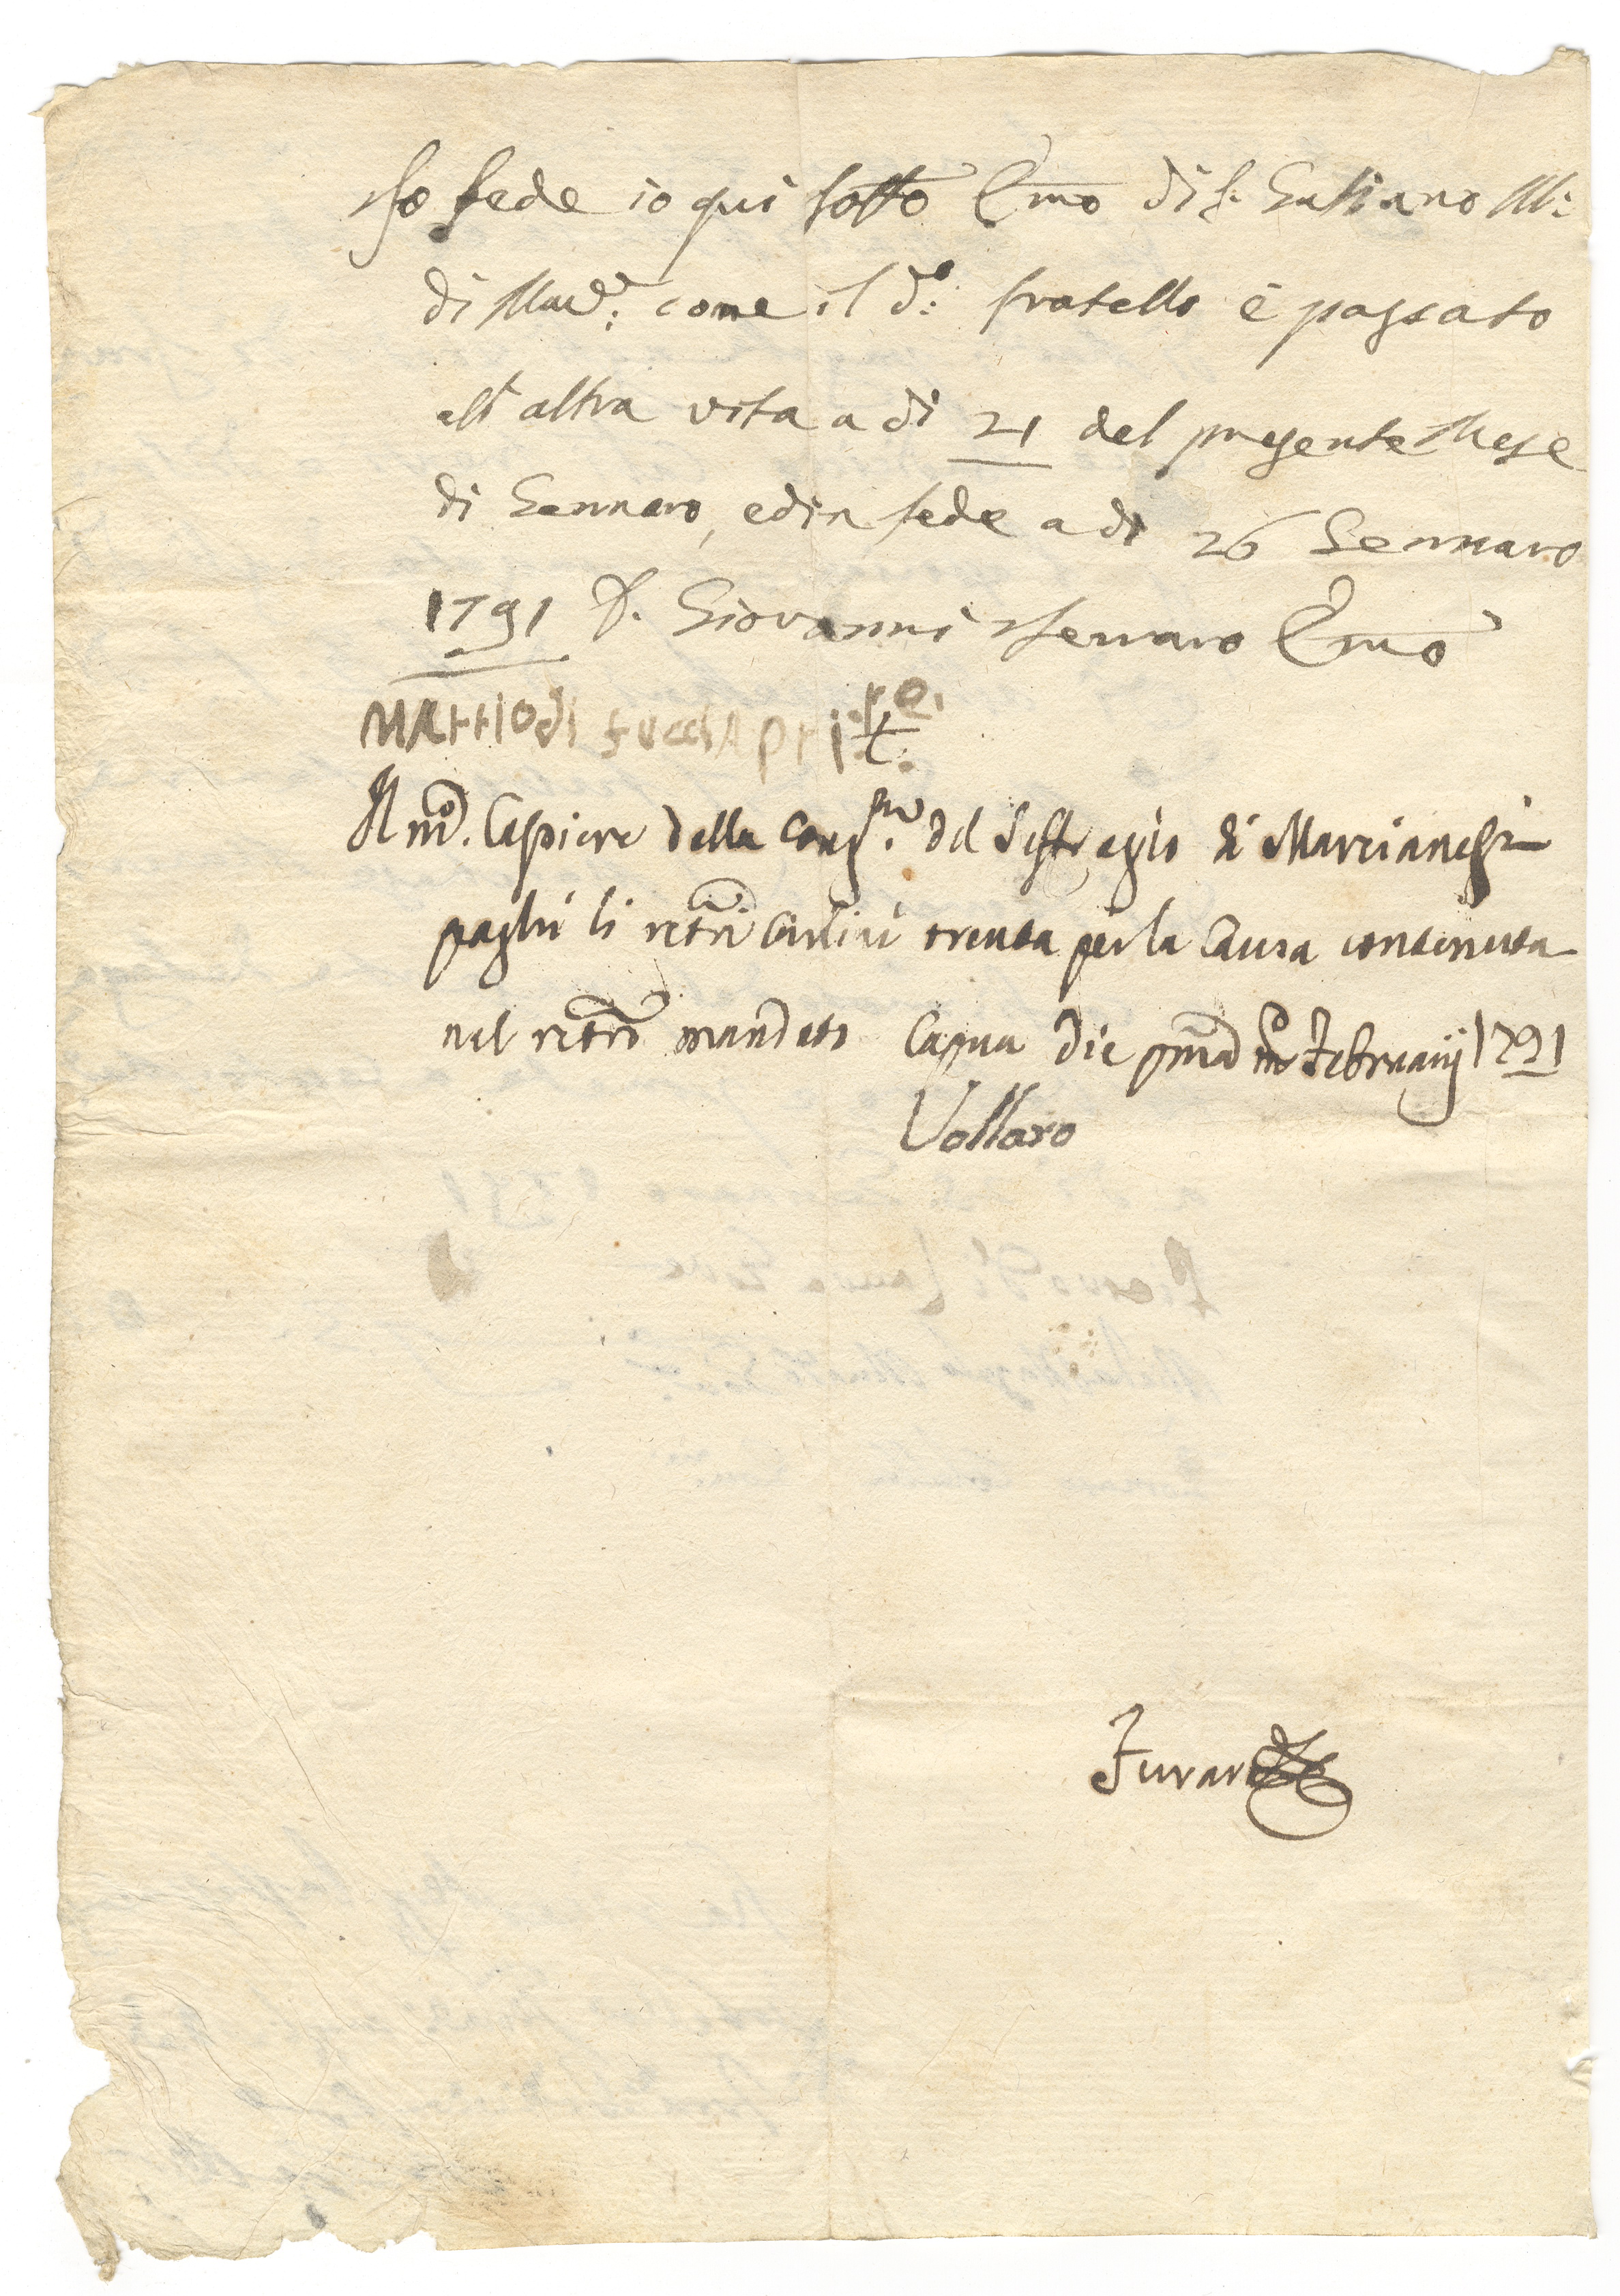 Fo fede io qui sotto Emo di f. Guliano M:
di Mad:e come il d:o fratello è passato
all' altra vita a di 21 del presente Mese
di Gennaro, ed in fede a di 26 Gennaro
1791 D. Giovanni Ferraro Emo
MAttio di
Il mco. Cassiere della Cong.ne del Suffragio di Marcianesi
paghi li retri Carlini trenta per la Causa contenuta
nel retro mandato Capua die pma ms Februarij 1791
Vollaro